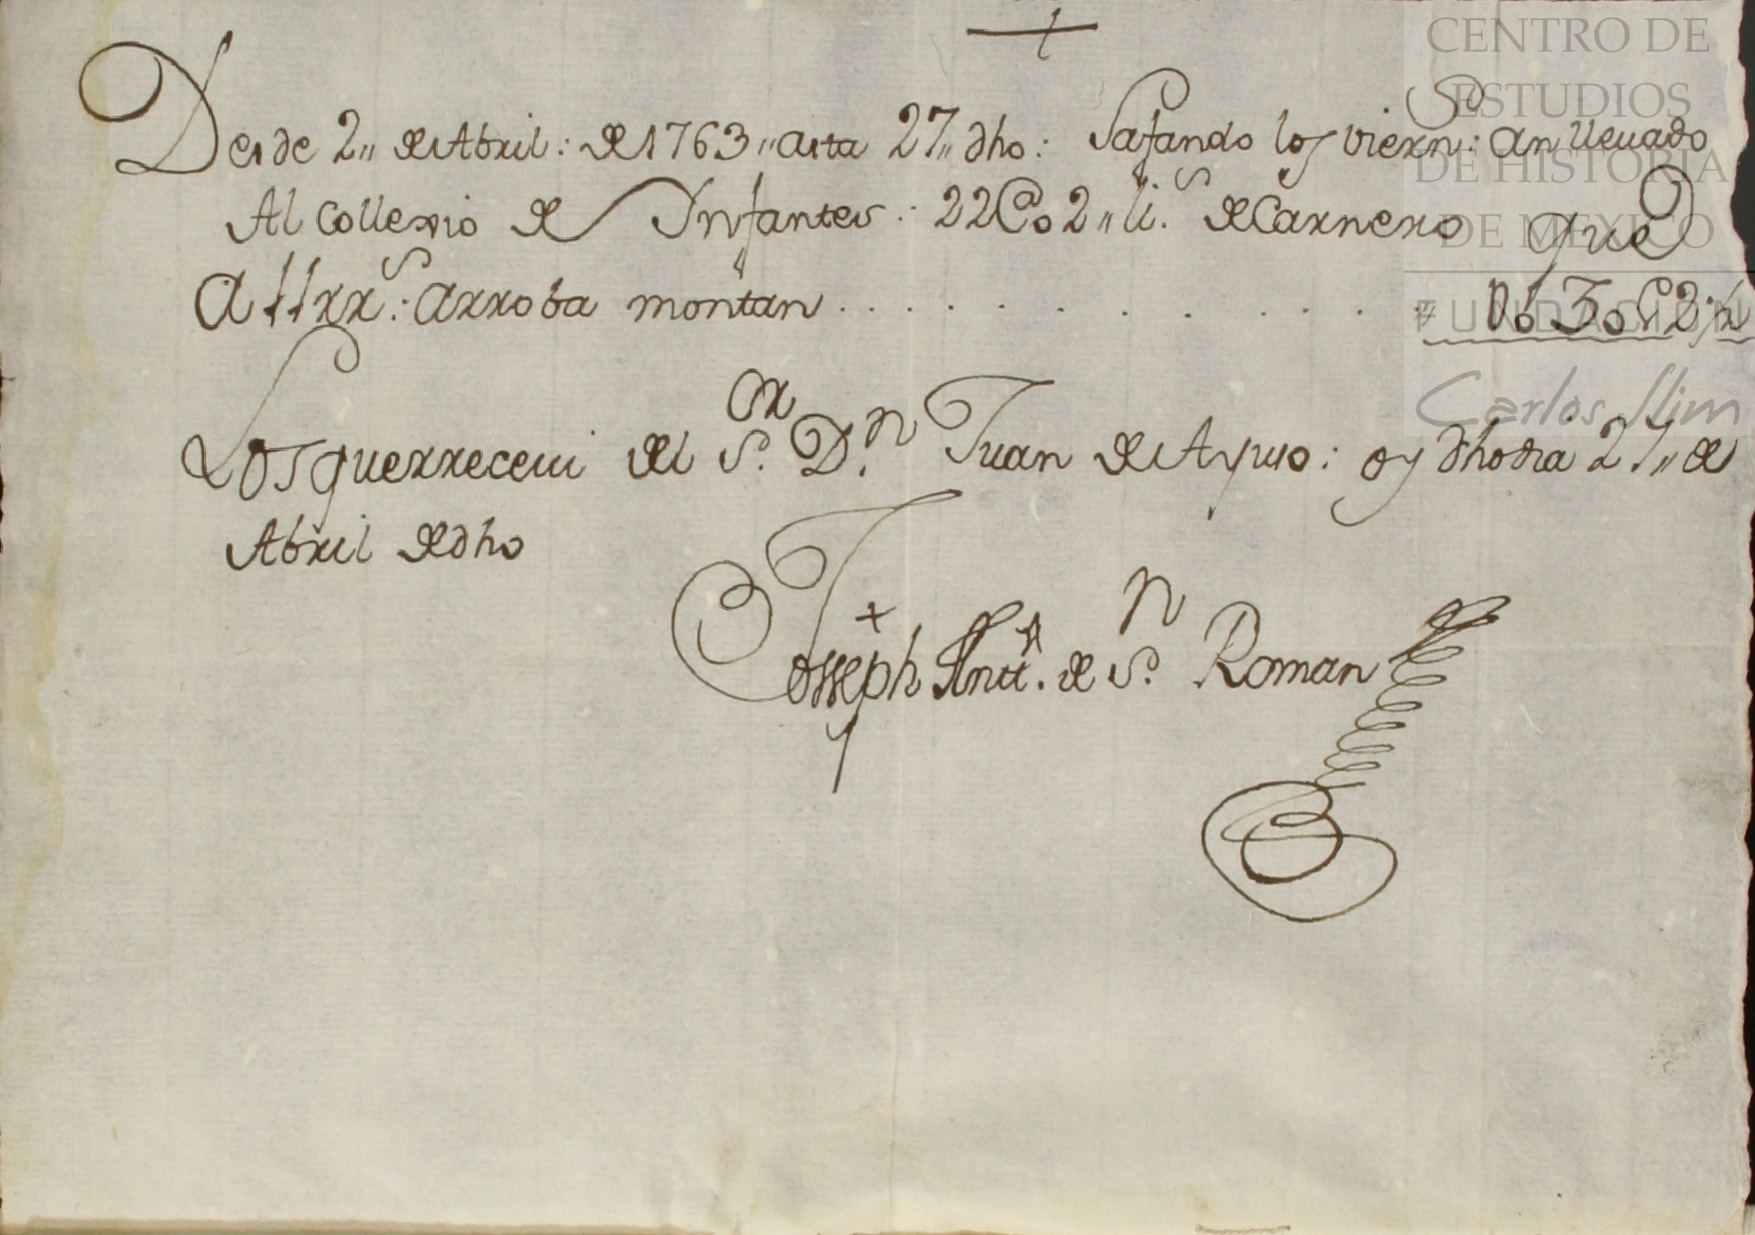 +
Desde 2,, de Abril: de 1763,, asta 27,, dho: Safando los viern.s: an lleuado
Al Collexio de Infantes: 22@ 2,, li.s de Carnero que
A 11 rr.s: arroba montan . . . . . . . . . .
Los que rreceui del S.or D.n Juan de Ayuso: oy dho dia 27,, de
Abril de dho
Josseph Antt.o de S.n Roman
CENTRO DE
ESTUDIOS
DE HISTORIA
DE MEXICO
FUNDACIÓN
Carlos Slim